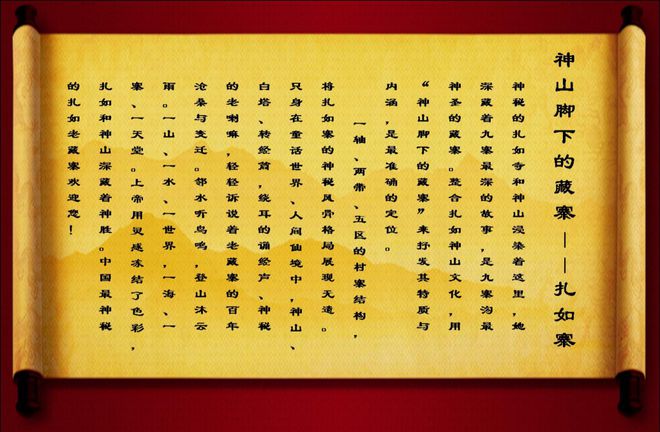 神山脚下的藏寨——扎如寨
神秘的扎如寺和神山浸染着这里，她
深藏着九寨最深的故事，是九寨沟最
神圣的藏寨。整合扎如神山文化，用
“神山脚下的藏寨”来抒发其特质与
内涵，是最准确的定位。
一轴、两带、五区的村寨结构，
将扎如寨的神秘风骨格局展现无遗。
只身在童话世界、人间仙境中，神山、
白塔、转经筒，绕耳的诵经声、神秘
的老喇嘛，轻轻诉说着老藏寨的百年
沧桑与变迁。邻水听鸟鸣，登山沐云
雨。一山、一水、一世界，一海、一
寨、一天堂。上帝用灵冻结了色彩，
扎如和神山深藏着神胜。中国最神秘
的扎如老藏寨欢迎您！